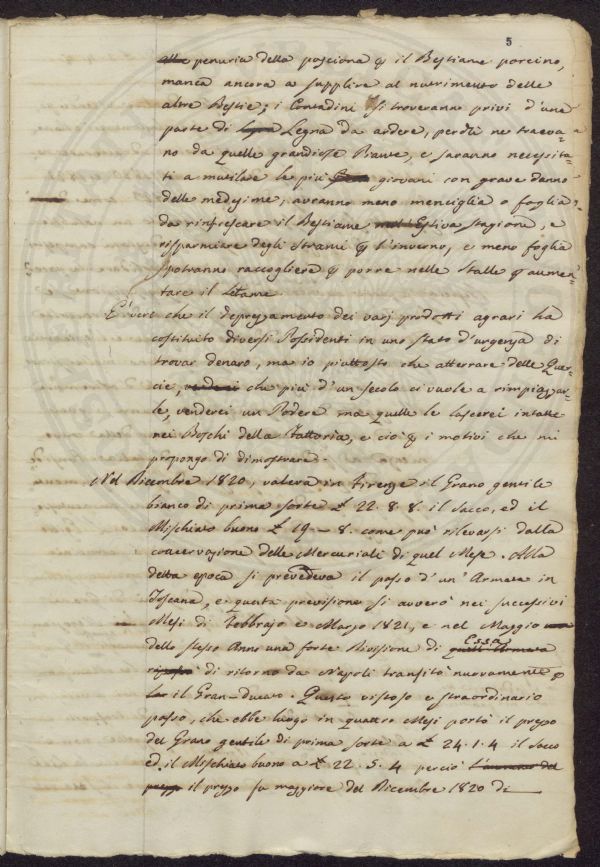 5
alla penuria della pasciona p il Bestiame porcino,
manca ancora a supplire al nutrimento delle
altre Bestie; i Contadini si troveranno privi d'una
parte di legna Legna da ardere, perchè ne traeva=
no da quelle grandiose Piante, e saranno necessita=
ti a mutilare le più giovani con grave danno
delle medesime, avranno meno menciglia o foglia
da rinfrescare il Bestiame nell'Estiva stagione, e
risparmiare degli Strami p l'inverno, e meno foglia
potranno raccogliere p porre nelle Stalle p aumen=
tare il letame
E' vero che il deprezzamento dei varj prodotti agrari ha
costituito diversi Possidenti in uno stato d'urgenza di
trovar denaro, ma io piuttosto che atterrare delle Quer=
cie, venderei che più d'un secolo ci vuole a rimpiazzar=
le, venderei un Podere ma quelle le lascerei intatte
nei Boschi della Fattoria, e ciò p i motivi che mi
propongo di dimostrare.
Nel Dicembre 1820, valeva in Firenze il Grano gentile
bianco di prima sorte £ 22.8.8. il Sacco, ed il
Mischiato buono £ 19 — 8. come può rilevarsi dalla
conservazione delle Mercuriali di quel Mese. Alla
detta epoca si prevedeva il passo d'un'Armata in
Toscana, e questa previsione si avverò nei successivi
Mesi di Febbrajo e Marzo 1821, e nel Maggio
dello stesso Anno una forte Divisione di quell'Armata Essa
di ritorno da Napoli transitò nuovamente p
il Gran-Ducato. Questo vistoso e straordinario
passo, che ebbe luogo in quattro Mesi portò il prezzo
del Grano gentile di prima sorte a £ 24.1.4 il Sacco
ed il Mischiato buono a £ 22.5.4 perciò l'aumento del
prezzo il prezzo fu maggiore del Dicembre 1820 di —